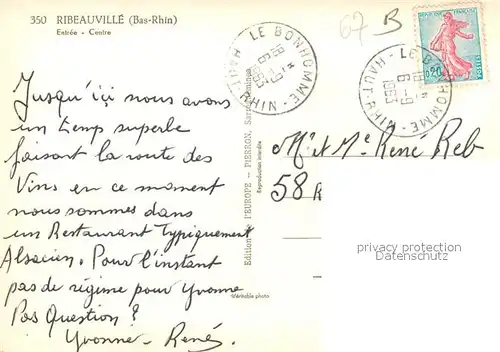 350 RIBEAUVILLÉ (Bas-Rhin)
Entrée - Centre
67 B
LE BONHOMME - HAUT-RHIN
LE BONHOMME - HAUT-RHIN
0,20
POSTES
Jusqu'içi nous avons
un temp superbe
faisant la route des
Vins en ce moment
nous sommes dans
un Restaurant Typiquement
Alsacien. Pour l'instant
pas de régime pour Yvonne
Pas Question ?
Yvonne - René.
Edition de l'EUROPE - PIERRON,
Reproduction interdite
Véritable photo
Mr et Me René Reb
58 R
privacy protection
Datenschutz